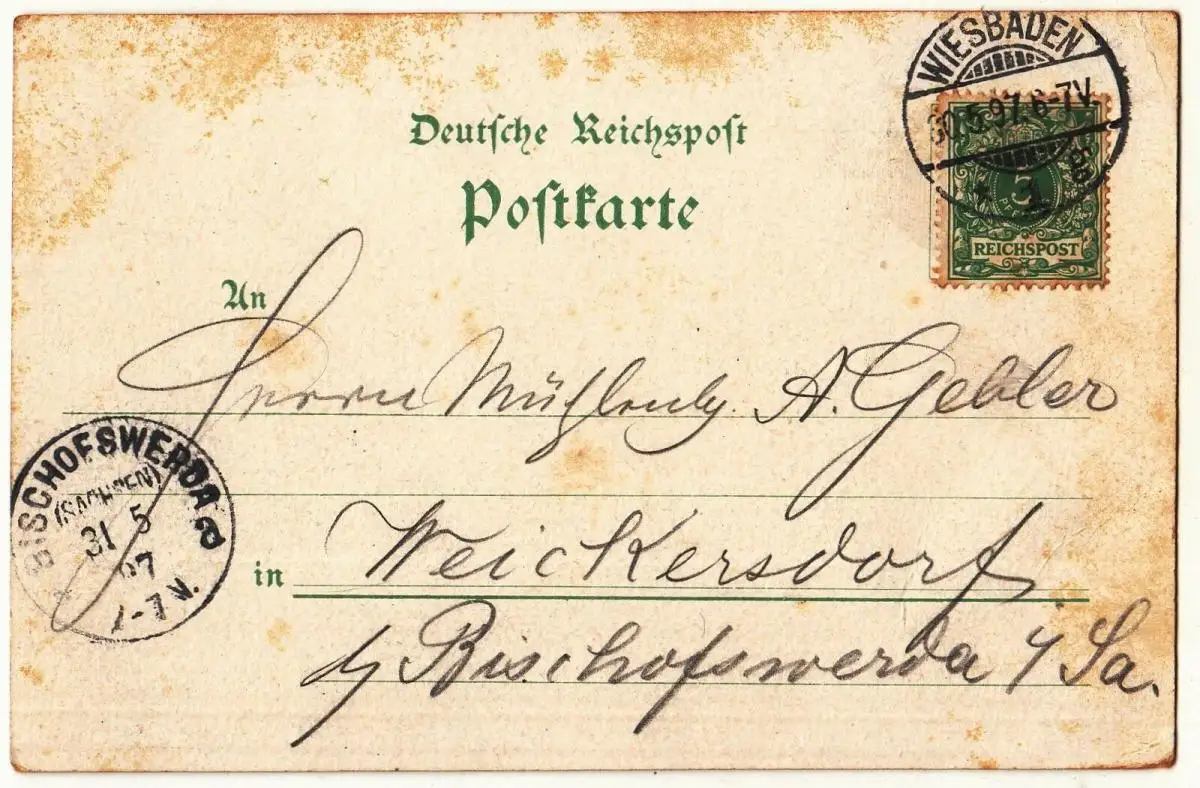 Deutsche Reichspost
Postkarte
WIESBADEN
30.5.97.6-7V.
* 1
5
PFENNIG
REICHSPOST
An
Herrn Mühlenbes. A. Gebler
BISCHOFSWERDA
(SACHSEN)
31 5
97
7-V.
in Weickersdorf
b/ Bischofswerda i/ Sa.